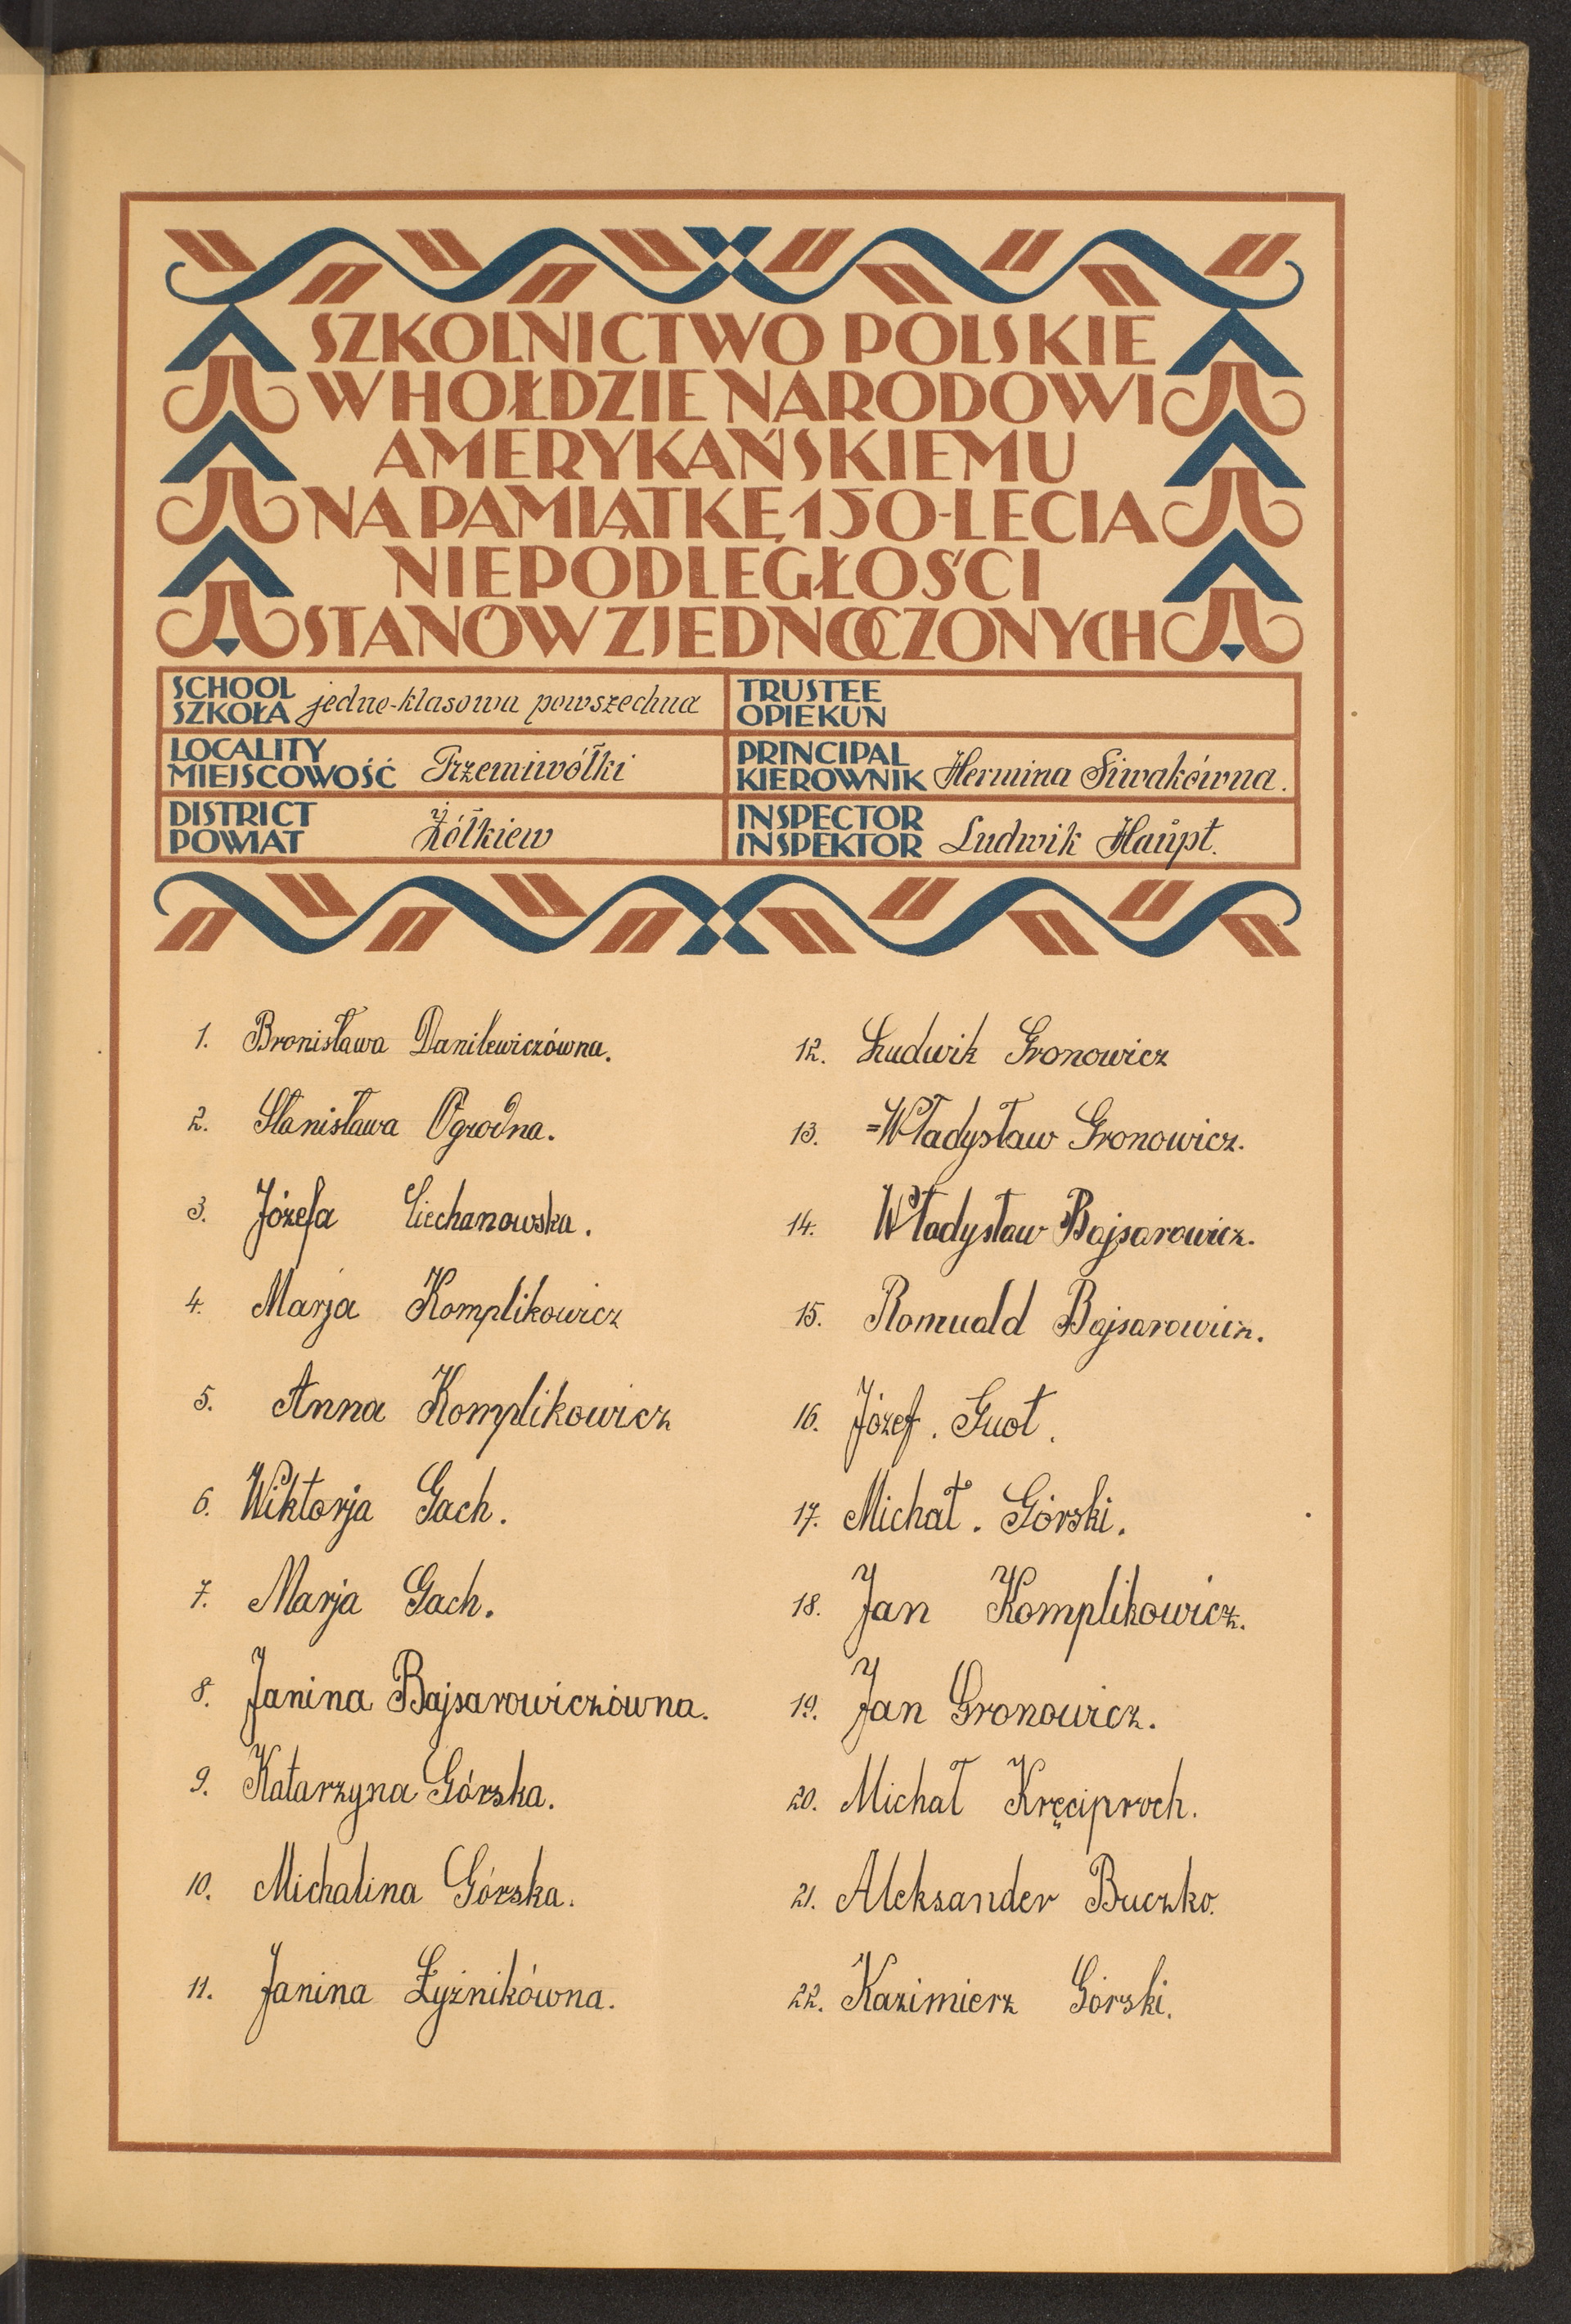 SZKOLNICTWO POLSKIE
W HOŁDZIE NARODOWI
AMERYKAŃSKIEMU
NA PAMIĄTKĘ 150-LECIA
NIEPODLEGŁOŚCI
STANÓW ZJEDNOCZONYCH
SCHOOL
SZKOŁA jedno-klasowa powszechna
LOCALITY
MIEJSCOWOŚĆ Przemiwółki
DISTRICT
POWIAT Żółkiew
TRUSTEE
OPIEKUN
PRINCIPAL
KIEROWNIK Hermina Siwakówna.
INSPECTOR
INSPEKTOR Ludwik Haupt.
1. Bronisława Danilewiczówna.
2. Stanisława Ogrodna.
3. Józefa Ciechanowska.
4. Marja Komplikowicz
5. Anna Komplikowicz
6. Wiktorja Gach.
7. Marja Gach.
8. Janina Bajsarowiczówna.
9. Katarzyna Górska.
10. Michalina Górska.
11. Janina Łyżnikówna.
12. Ludwik Gronowicz
13. Władysław Gronowicz.
14. Władysław Bajsarowicz.
15. Romuald Bajsarowicz.
16. Józef. Guot.
17. Michał. Górski.
18. Jan Komplikowicz.
19. Jan Gronowicz.
20. Michał Kręciproch.
21. Aleksander Buczko.
22. Kazimierz Górski.